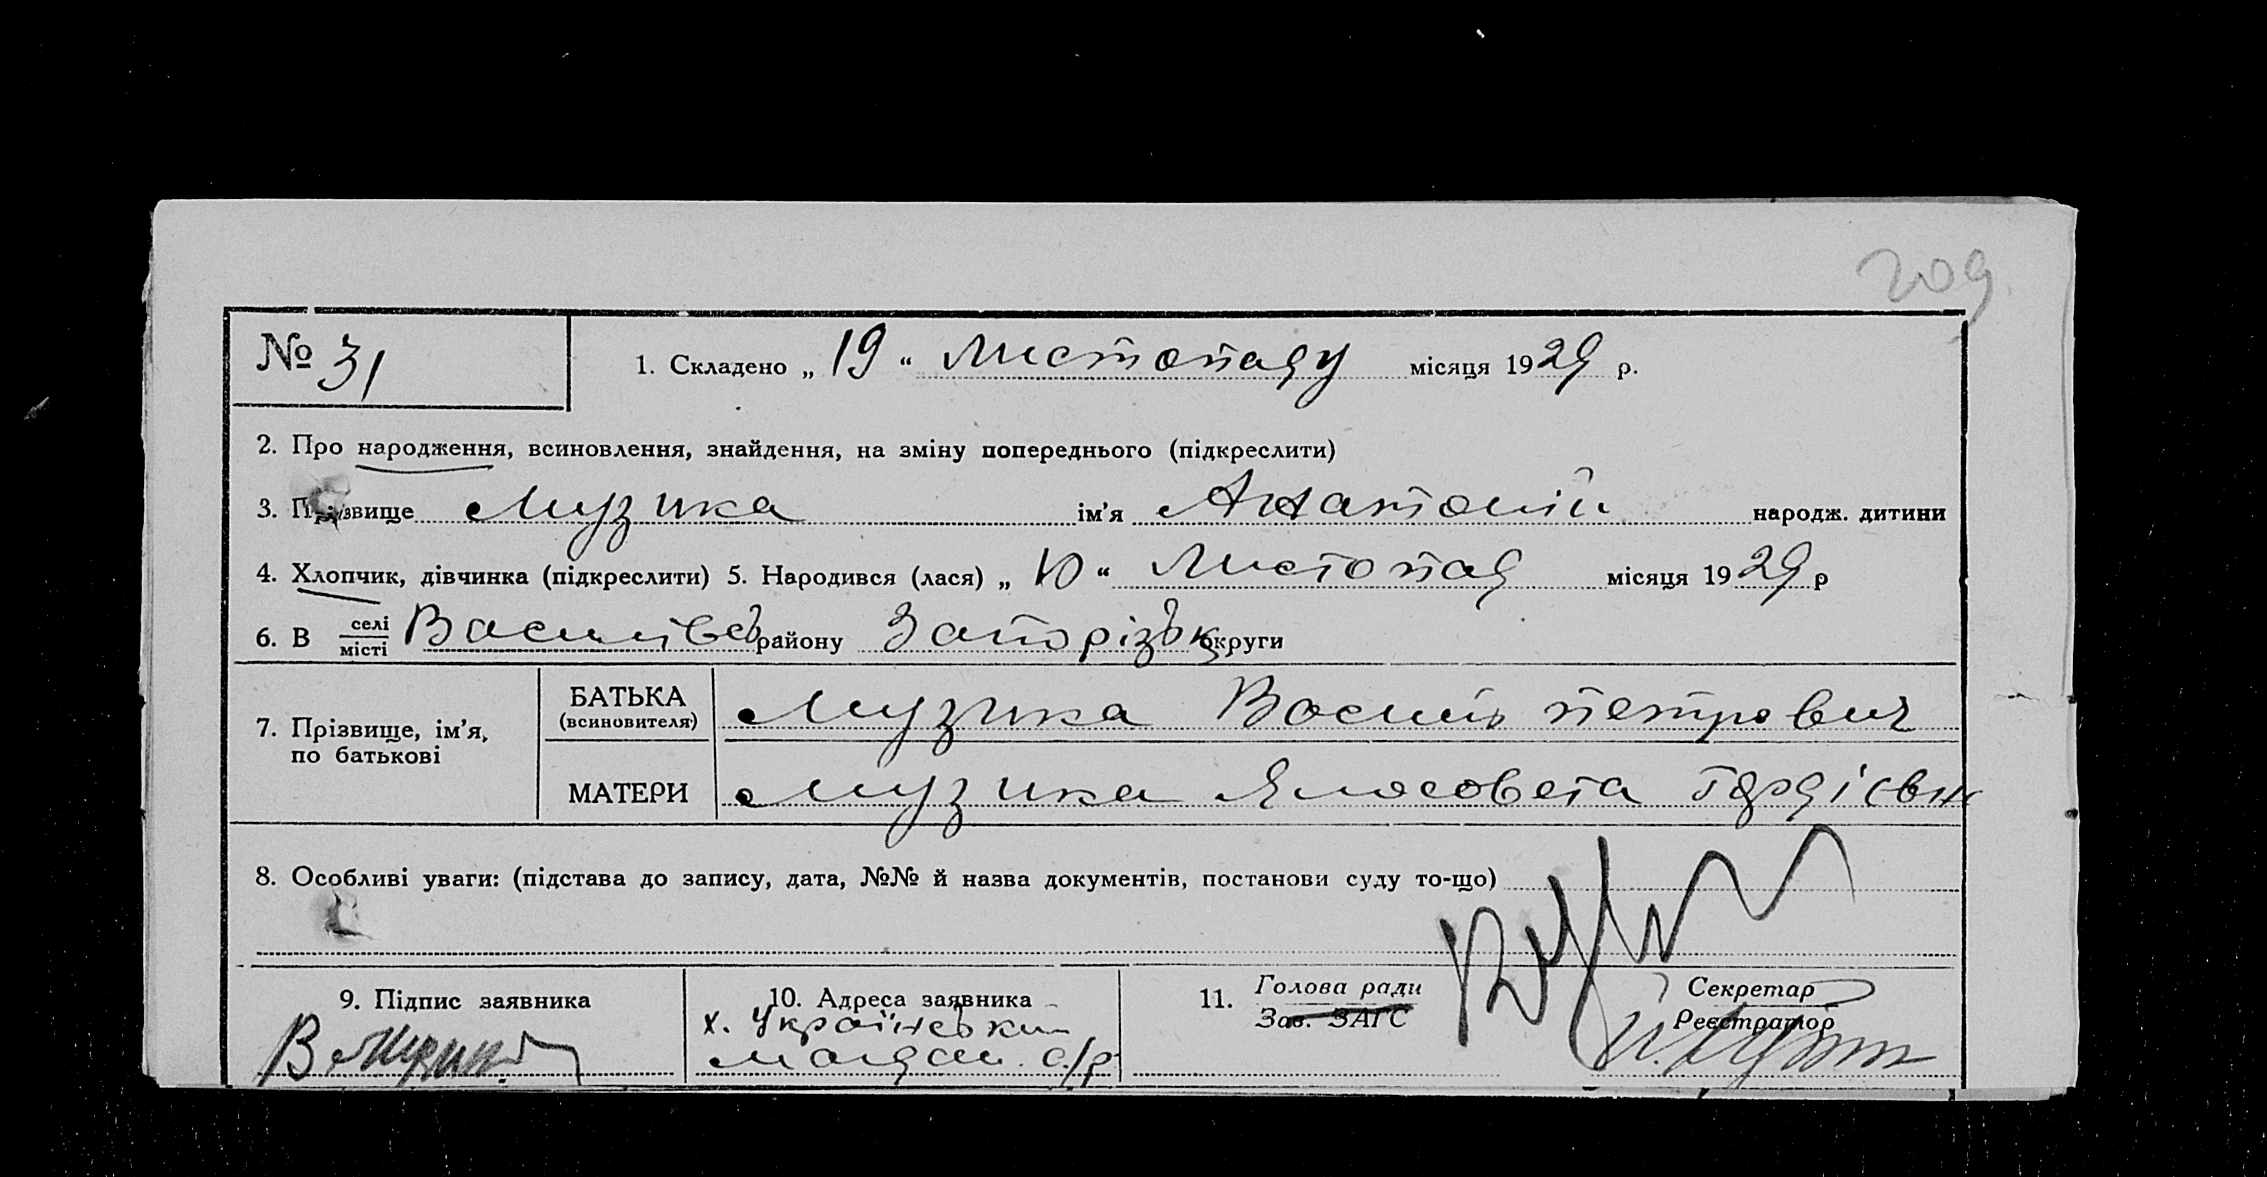 209
№ 31
1. Складено „ 19 “ Листопаду місяця 1929 р.
2. Про народження, всиновлення, знайдення, на зміну попереднього (підкреслити)
3. Прізвище Музика ім'я Анатолій народж. дитини
4. Хлопчик, дівчинка (підкреслити) 5. Народився (лася) „ 10 “ Листопад місяця 1929 р
6. В селі місті Василівсь району Запорізьк округи
7. Прізвище, ім'я, по батькові
БАТЬКА (всиновителя) Музика Василь петрович
МАТЕРИ МузикаЯлосовета Гордієвн
8. Особливі уваги: (підстава до запису, дата, №№ й назва документів, постанови суду то-що)
9. Підпис заявника
10. Адреса заявника
х. Українськи
с/р
11. Голова ради
Зав. ЗАГС
Секретар
Реєстратор